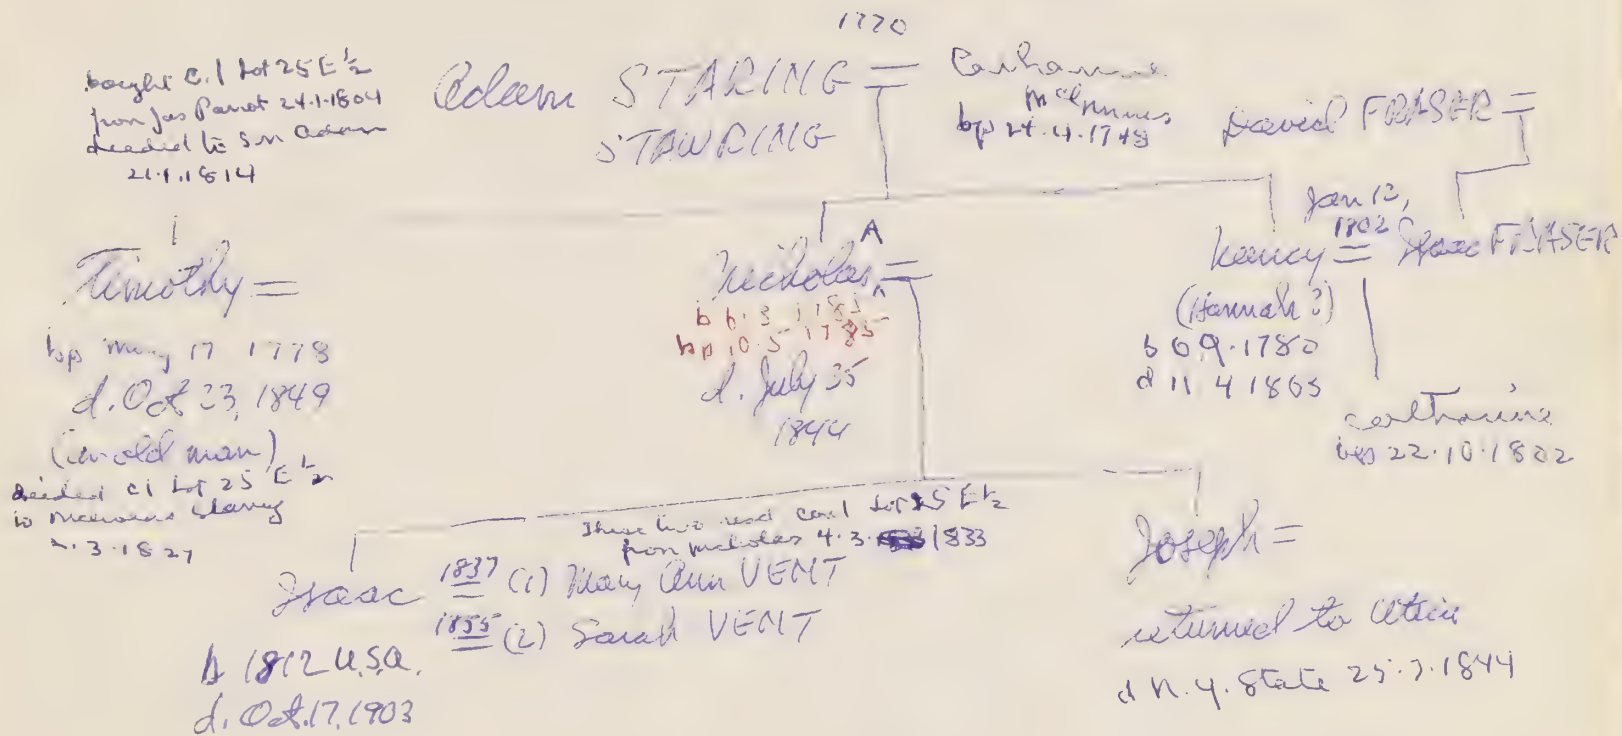 1770
bought C.1 Lot 25 E½
from Jas Parrot 24.1.1804
deeded to Adam
21.1.1814
Adam STARING =
STAWRING
Catharine
bp 24.4.1748
David FRASER =
Timothy =
bp May 17 1778
d. Oct 23, 1849
(an old man)
deeded C1 Lot 25 E½
to Nicholas Staring
2.3.1827
A
Nicholas =
b 6.3 1785
bp 10.5 1785
d. July 25
1844
Jan 12,
1802
Nancy = Isaac FRASER
(Hannah?)
b 09.1780
d 11 4 1803
Catharine
bp 22.10.1802
These two Con 1 Lot 25 E½
from Nicholas 4.3. 1833
Isaac 1837 = (1) Mary Ann VENT
1855 = (2) Sarah VENT
b 1812 U.S.A.
d. Oct.17,1903
Joseph =
returned to Utica
d N.Y. State 25.7.1844